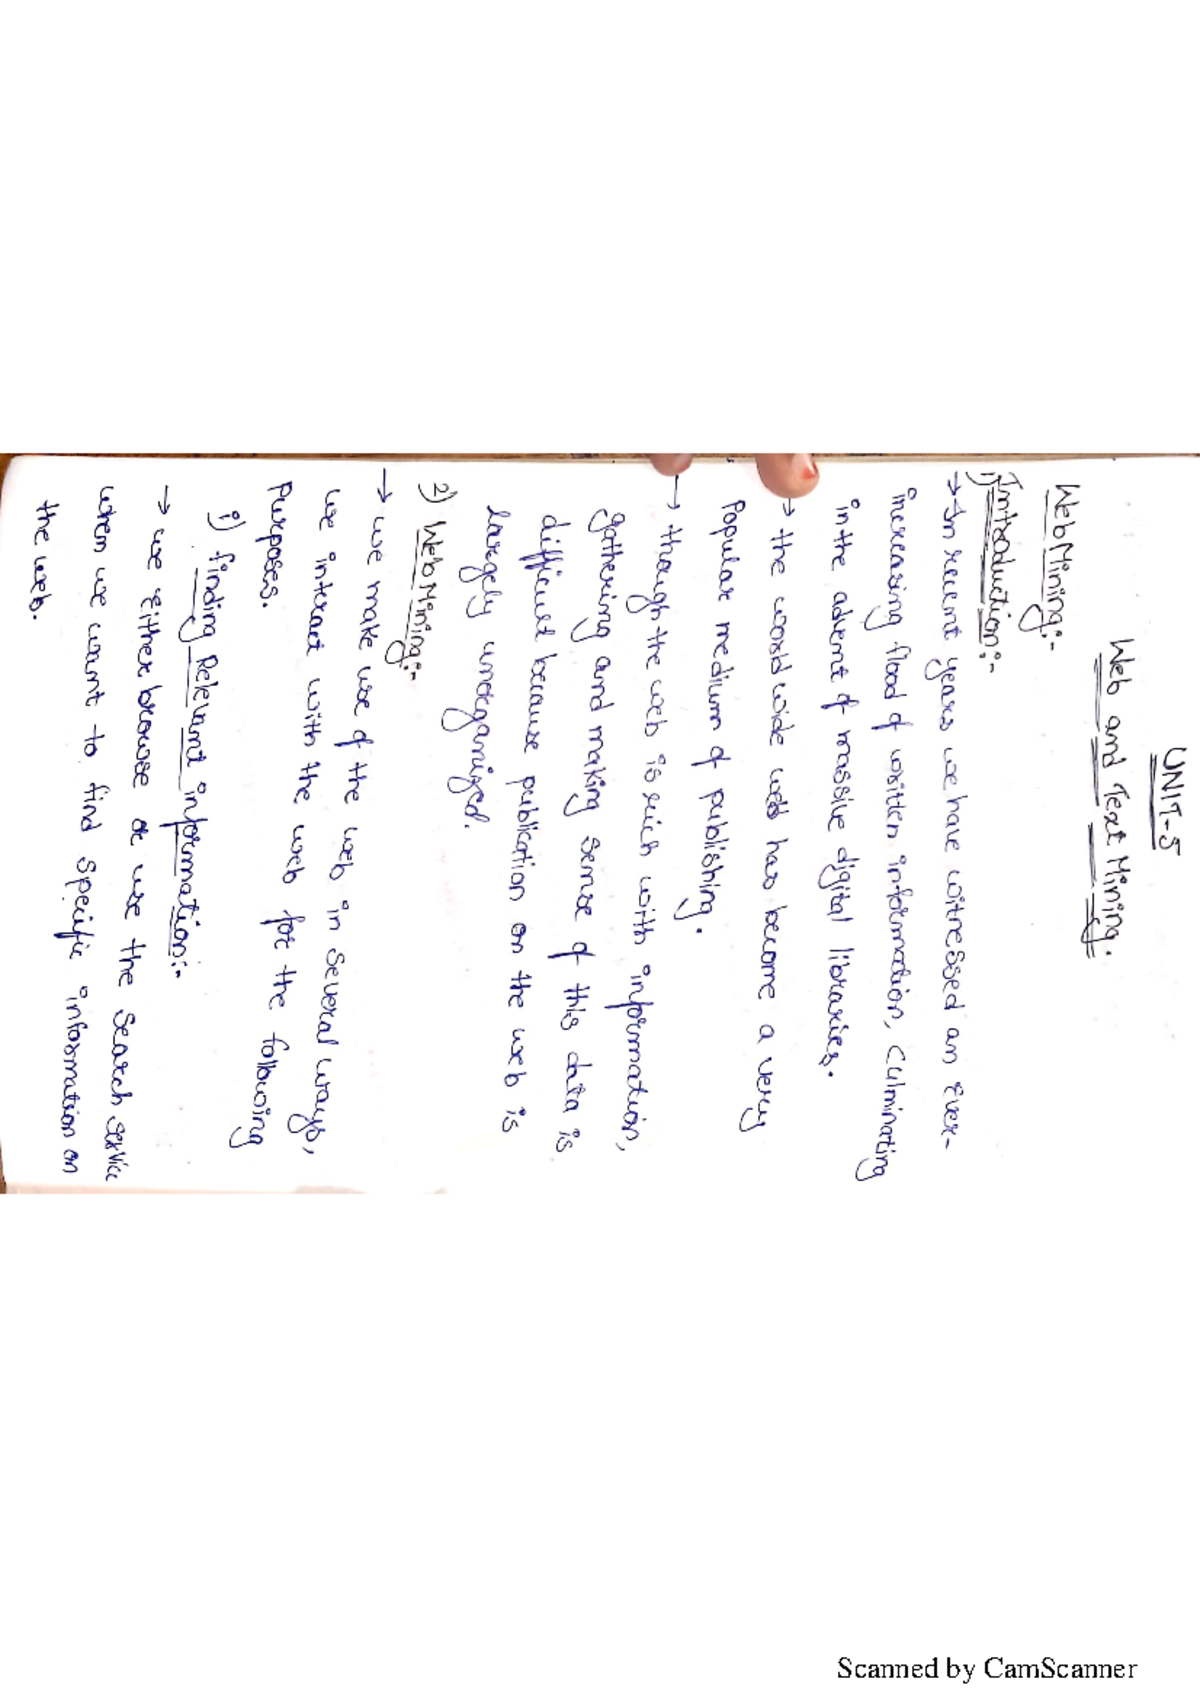 UNIT-5
Web and Text Mining.
Web Mining:-
1) Introduction:-
→ In recent years we have witnessed an ever-
increasing flood of written information, culminating
in the advent of massive digital libraries.
→ the world wide web has become a very
Popular medium of publishing.
→ though the web is rich with information,
gathering and making sense of this data is
difficult because publication on the web is
largely unorganized.
2) Web Mining:-
→ we make use of the web in several ways,
we interact with the web for the following
purposes.
i) finding Relevant information:-
→ we either browse or use the search service
when we want to find specific information on
the web.
Scanned by CamScanner